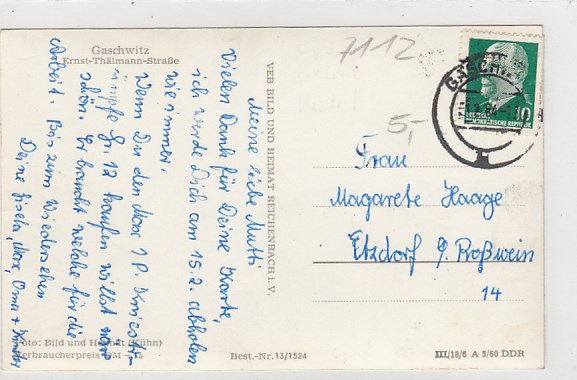 Gaschwitz
Ernst-Thälmann-Straße
7112
5,-
GASCHWITZ
10
DEUTSCHE
DEMOKRATISCHE REPUBLIK
VEB BILD UND HEIMAT REICHENBACH i. V.
Meine liebe Mutti
Vielen Dank für Deine Karte,
ich werde Dich am 15.2. abholen
wie immer.
Wenn Du den Max 1 P.
Gr. 12 kaufen willst wäre
schön. Er braucht welche für die
Arbeit. Bis zum Wiedersehen
Deine Gisela, Max, Oma + Kinder
Frau
Magarete Haage
Etzdorf ü. Roßwein
14
Foto: Bild und Heimat (Kühn)
Verbraucherpreis DM
Best.-Nr. 13/1524
III/18/6 A 3/60 DDR